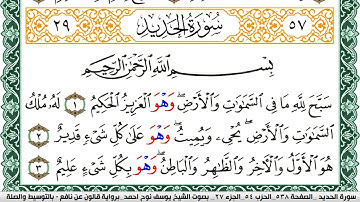 ٢٩ سُورَةُ الْحَدِيدِ ٥٧
بِسْمِ اللَّهِ الرَّحْمَٰنِ الرَّحِيمِ
سَبَّحَ لِلَّهِ مَا فِي السَّمَٰوَٰتِ وَالْأَرْضِ وَهْوَ الْعَزِيزُ الْحَكِيمُ ١ لَهُ مُلْكُ
السَّمَٰوَٰتِ وَالْأَرْضِ يُحْيِۦ وَيُمِيتُ وَهْوَ عَلَىٰ كُلِّ شَيْءٍ قَدِيرٌ ٢
هُوَ الْأَوَّلُ وَالْآخِرُ وَالظَّٰهِرُ وَالْبَاطِنُ وَهْوَ بِكُلِّ شَيْءٍ عَلِيمٌ ٣
سورة الحديد _الصفحة ٥٣٨_ الحزب ٥٤_ الجزء ٢٧ _ بصوت الشيخ يوسف نوح احمد _برواية قالون عن نافع - بالتوسيط والصلة